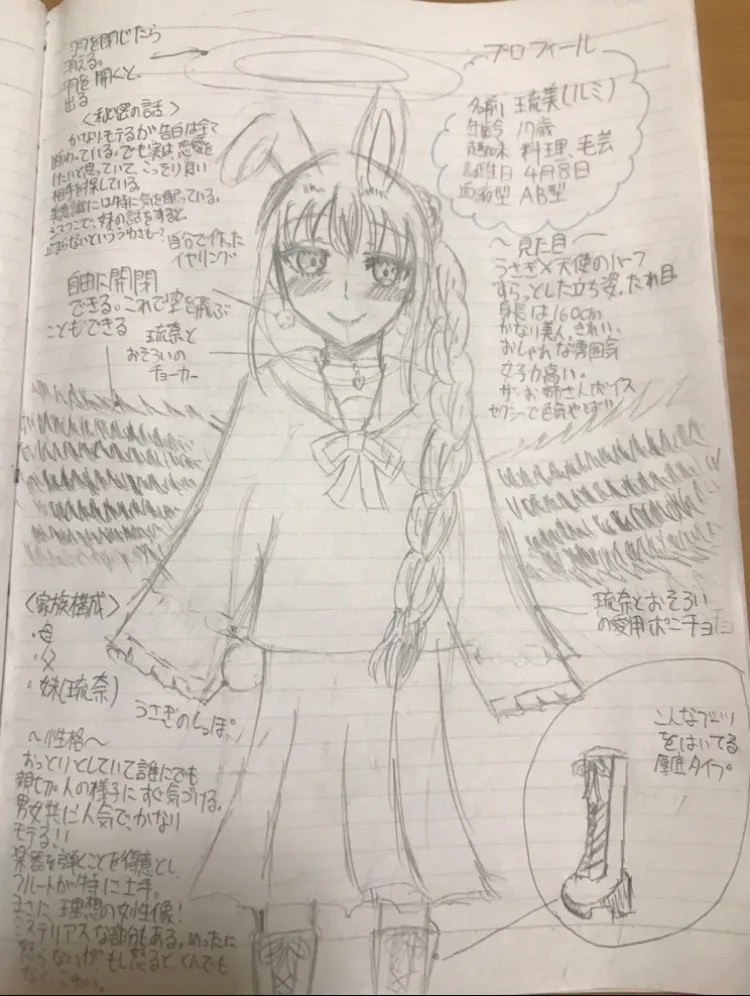 羽を閉じたら
消える。
羽を開くと、
出る
<秘密の話>
かなりモテるが告白は全て
断わっている。でも実は、恋愛を
したいと思っていて、こっそり良い
相手を探している。
美意識には特に気を配っている。
シスコンで、妹の話をすると
止まらないといううわさも…?
自分で作った
イヤリング
自由に開閉
できる。これで空を飛ぶ
こともできる
琉奈と
おそろいの
チョーカー
プロフィール
名前 琉美(ルミ)
年齢 17歳
趣味 料理、毛芸
誕生日 4月8日
血液型 AB型
〜見た目〜
うさぎ×天使のハーフ
すらっとした立ち姿。たれ目
身長は160cm
かなり美人。きれい。
おしゃれな雰囲気
女子力高い。
ザ・お姉さんボイス
セクシーで色気やば!!
琉奈とおそろい
の愛用ポンチョ
<家族構成>
・母
・父
・妹(琉奈)
うさぎのしっぽ。
〜性格〜
おっとりとしていて誰にでも
親切。人の様子にすぐ気づける。
男女共に人気で、かなり
モテる!!
楽器を弾くことを得意とし、
フルートが特に上手。
まさに、理想の女性像!
ミステリアスな部分もある。めったに
怒らないが、もし怒ると、とんでも
なく、こわい。
こんなブーツ
をはいてる
厚底タイプ。